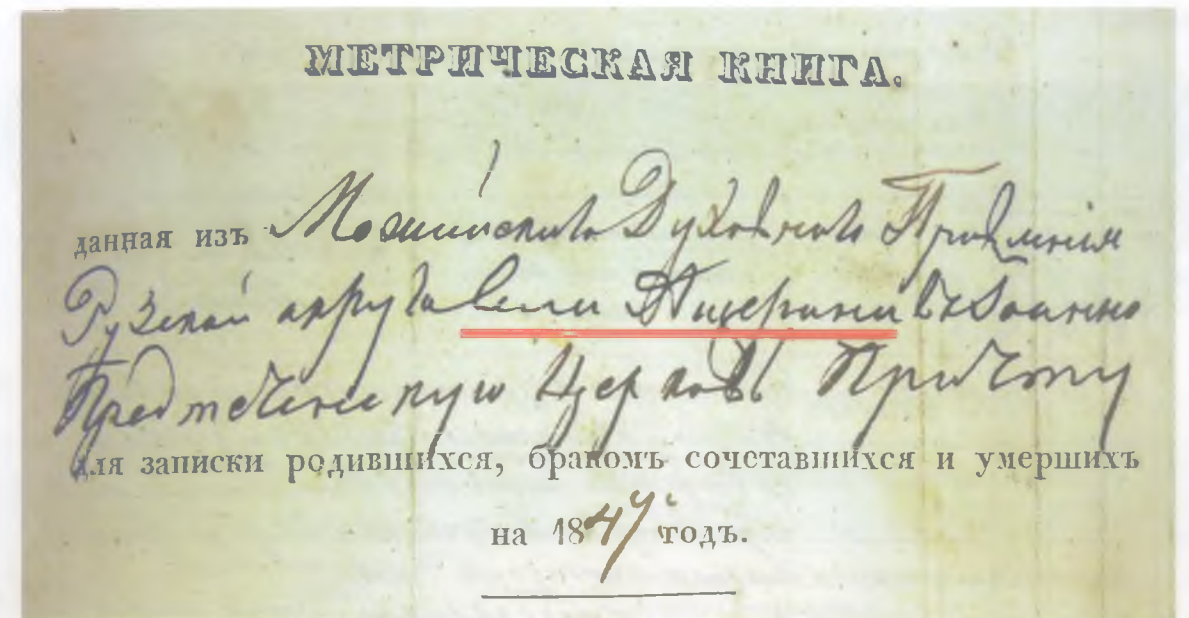 МЕТРИЧЕСКАЯ КНИГА.
данная изъ Можайскаго Духовнаго Правленія
Рузской округи села Ащерина въ Іоанно
Предтеческую Церковь Причту
для записки родившихся, бракомъ сочетавшихся и умершихъ
на 1847 годъ.